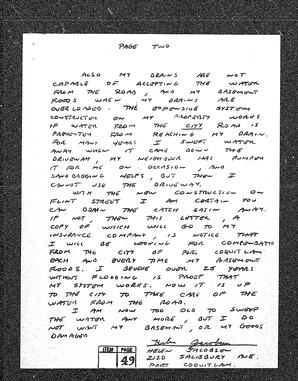 PAGE TWO
ALSO MY DRAINS ARE NOT
CAPABLE OF ACCEPTING THE WATER
FROM THE ROAD, AND MY BASEMENT
FLOODS WHEN MY DRAINS ARE
OVERLOADED. THE EXPENSIVE SYSTEM
CONSTRUCTED ON MY PROPERTY WORKS
IF WATER FROM THE CITY ROAD IS
PREVENTED FROM REACHING MY DRAIN.
FOR MANY YEARS I SWEPT WATER
AWAY WHEN IT CAME DOWN THE
DRIVEWAY, MY NEIGHBOUR HAS PUMPED
IT FOR ME ON OCCASION, AND
SANDBAGGING HELPS, BUT THEN I
CANNOT USE THE DRIVEWAY.
WITH THE NEW CONSTRUCTION ON
FLINT STREET I AM CERTAIN YOU
CAN DRAIN THE CATCH BASIN AWAY.
IF NOT, THEN THIS LETTER, A
COPY OF WHICH WILL GO TO MY
INSURANCE COMPANY, IS NOTICE THAT
I WILL BE LOOKING FOR COMPENSATION
FROM THE CITY OF PORT COQUITLAM
EACH AND EVERY TIME MY BASEMENT
FLOODS. I BELIEVE OVER 25 YEARS
WITHOUT FLOODING IS PROOF THAT
MY SYSTEM WORKS. NOW IT IS UP
TO THE CITY TO TAKE CARE OF THE
WATER FROM THE ROAD.
I AM NOW TOO OLD TO SWEEP
THE WATER ANY MORE, BUT I DO
NOT WANT MY BASEMENT, OR MY GOODS
DAMAGED
Helen Jacobsen
HELEN JACOBSEN
2150 SALISBURY AVE.
PORT COQUITLAM.
ITEM PAGE
49